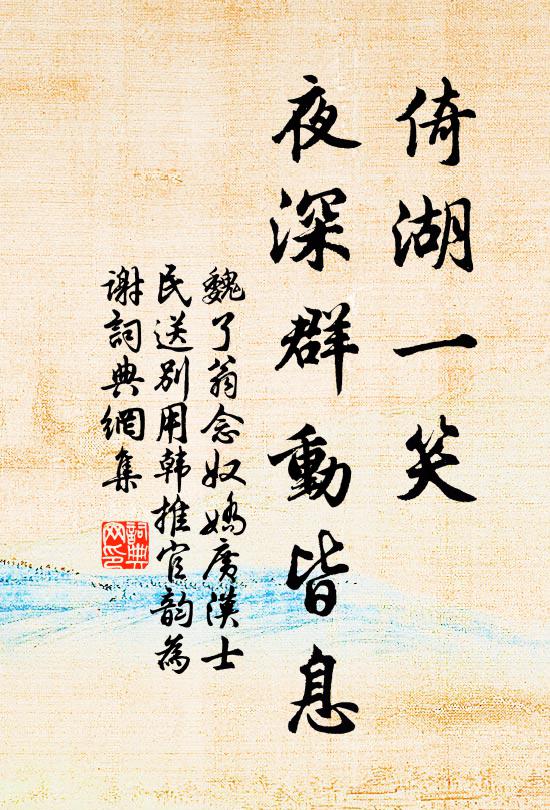 倚湖一笑
夜深群動皆息
魏了翁念奴嬌廣漢士
民送別用韩推官韵為
謝詞典網集
詞典
网印